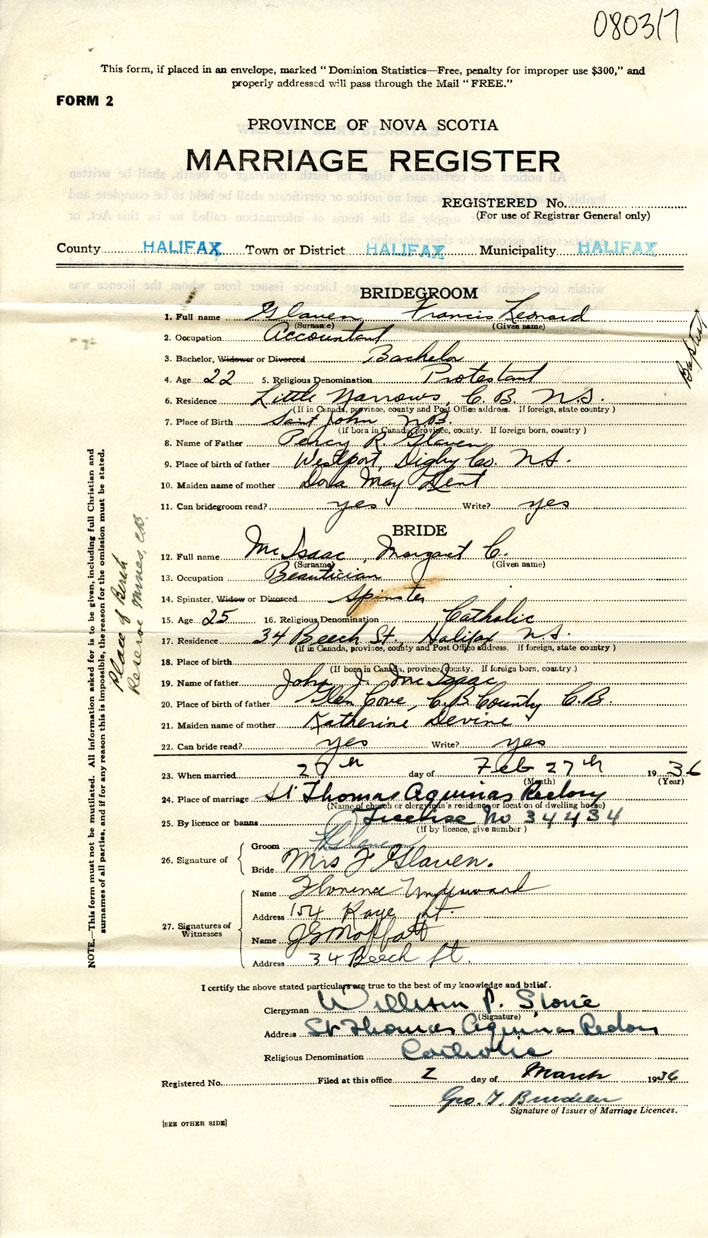 080317
This form, if placed in an envelope, marked "Dominion Statistics—Free, penalty for improper use $300," and
properly addressed will pass through the Mail "FREE."
FORM 2
PROVINCE OF NOVA SCOTIA
MARRIAGE REGISTER
REGISTERED No.
(For use of Registrar General only)
County HALIFAX Town or District HALIFAX Municipality HALIFAX
BRIDEGROOM
1. Full name Glaven Francis Leonard
(Surname) (Given name)
2. Occupation Accountant
3. Bachelor, Widower or Divorced Bachelor
Baptist
4. Age 22 5. Religious Denomination Protestant
6. Residence Little Narrows, C. B. N.S.
(If in Canada, province, county and Post Office address. If foreign, state country)
7. Place of Birth Saint John N.B.
(If born in Canada, province, county. If foreign born, country)
8. Name of Father Percy R. Glaven
9. Place of birth of father Westport, Digby Co. N.S.
10. Maiden name of mother Dora May Dent
11. Can bridegroom read? yes Write? yes
BRIDE
12. Full name McIsaac, Margaret C.
(Surname) (Given name)
13. Occupation Beautician
14. Spinster, Widow or Divorced Spinster
15. Age 25 16. Religious Denomination Catholic
17. Residence 34 Beech St., Halifax N.S.
(If in Canada, province, county and Post Office address. If foreign, state country)
18. Place of birth
(If born in Canada, province, county. If foreign born, country.)
19. Name of father John J. McIsaac
20. Place of birth of father Glen Cove, C.B. County C.B.
21. Maiden name of mother Katherine Devine
22. Can bride read? yes Write? yes
23. When married 27th day of Feb 27th 1936
(Month) (Year)
24. Place of marriage St Thomas Aquinas Rectory
(Name of church or clergyman's residence or location of dwelling house)
25. By licence or banns License No 34434
(If by licence, give number)
26. Signature of
Groom Glaven
Bride Mrs F Glaven.
27. Signatures of Witnesses
Name Florence
Address 154 Kaye St.
Name J G Moffatt
Address 34 Beech St.
I certify the above stated particulars are true to the best of my knowledge and belief.
Clergyman William P. Stone
(Signature)
Address St Thomas Aquinas Rectory
Religious Denomination Catholic
Registered No. Filed at this office 2 day of March 1936
Geo. T.
Signature of Issuer of Marriage Licences.
[SEE OTHER SIDE]
NOTE.—This form must not be mutilated. All information asked for is to be given, including full Christian and
surnames of all parties, and if for any reason this is impossible, the reason for the omission must be stated.
Place of Birth
Reserve Mines, C.B.